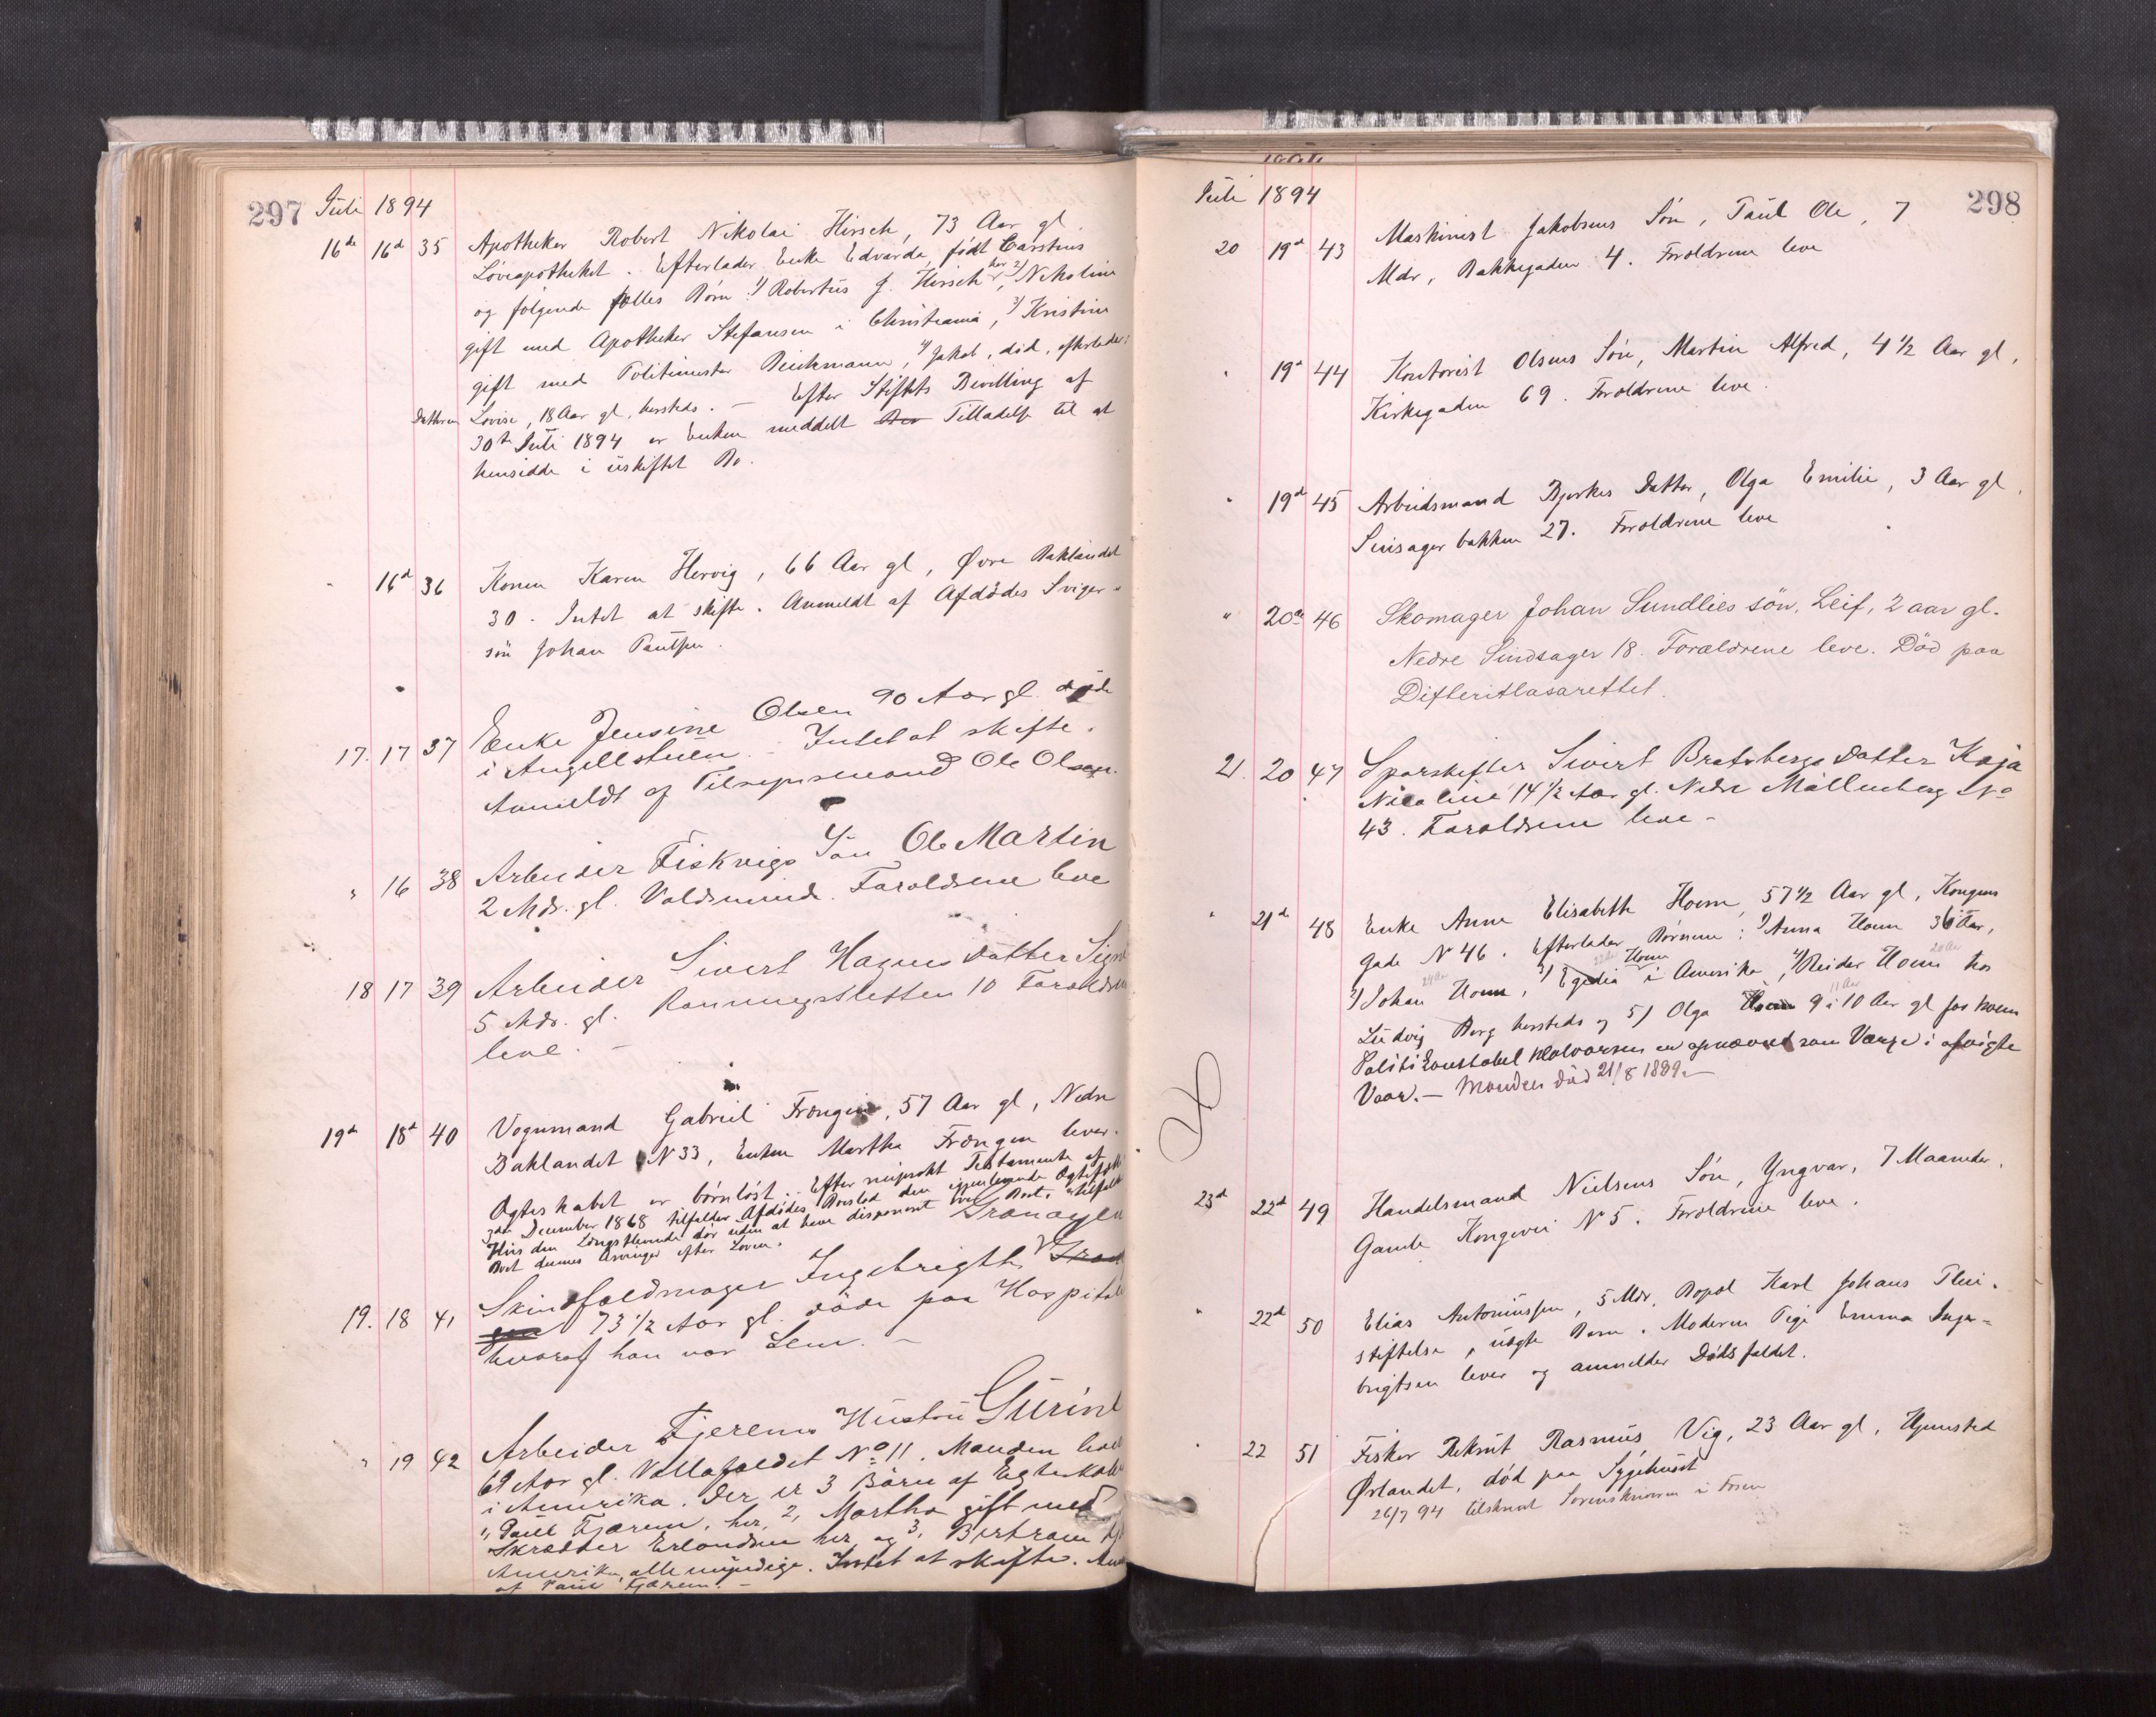 297 Juli 1894
16de 16d 35 Apotheker Robert Nikolai Hirsch, 73 Aar gl.
Løveapotheket. Efterlader Enke Edvarda, født Carstens
og følgende fælles Børn: 1) Robertus J. Hirsch her, 2) Nikoline
gift med Apotheker Stefansen i Christiania, 3) Kristine
gift med Politimester Beichmann, 4) Jakob, død, efterlader:
Datteren Lovise, 18 Aar gl, hersteds. — Efter Stiftets Bevilling af
30te Juli 1894 er Enken meddelt Tilladelse til at
hensidde i uskiftet Bo.
" 16d 36 Konen Karen Hervig, 66 Aar gl, Øvre Baklandet
30. Intet at skifte. Anmeldt af Afdødes Sviger-
søn Johan Paulsen.
17. 17 37 Enke Jensine Olsen 90 Aar gl. døde
i Angellstuen. Intet at skifte.
Anmeldt af Tilsynsmand Ole Olsen.
" 16 38 Arbeider Fiskvigs Søn Ole Martin
2 Mdr. gl. Voldsminde. Forældrene leve
18 17 39 Arbeider Sivert Hagens Datter Signe
5 Mdr. gl. Rønningsletten 10 Forældrene
leve. —
19d 18d 40 Vognmand Gabriel Frengen, 57 Aar gl, Nedre
Baklandet N 33, Enken Martha Frængen lever.
Ægteskabet er børnløst. Efter Testamente af
3die December 1868 tilfalder Afdødes Boeslod den igjenlevende Ægtefælle
Hvis den Længstlevende dør uden at have disponeret over Boet, tilfalder
Boet dennes Arvinger efter Loven.
Granaasen
19. 18 41 Skindfeldmager Ingebrigth
73 1/2 Aar gl. døde paa Hospitalet
hvoraf han var Lem. —
" 19 42 Arbeider Fjerems Hustru Gurine
69 Aar gl. Vollafaldet No 11. Manden lever
i Amerika. Der er 3 Børn af Egteskabet
1, Paul Fjærem, her, 2, Martha gift med
Skrædder Erlandsen her og 3, Bertram
Amerika, alle myndige. Intet at skifte. Anm
af Paul Fjærem. —
Juli 1894 298
20 19d 43 Maskinist Jakobsens Søn, Paul Ole, 7
Mdr, Bakkegaden 4. Forældrene leve
" 19d 44 Kontorist Olsens Søn, Martin Alfred, 4 1/2 Aar gl,
Kirkegaden 69. Forældrene leve.
" 19d 45 Arbeidsmand Bjerkes Datter, Olga Emilie, 3 Aar gl,
Sinsagerbakken 27. Forældrene leve
" 20de 46 Skomager Johan Sundlies søn, Leif, 2 aar gl.
Nedre Sindsager 18. Forældrene leve. Död paa
Difteritlasarettet.
21. 20 47 Sporskifter Sivert Bratsbergs Datter Kaja
Nicoline 14 1/2 Aar gl. Nedre Møllenberg No
43. Forældrene leve —
" 21d 48 Enke Anne Elisabeth Hoem, 57 1/2 Aar gl, Kongens
Gade N 46. Efterlader Børnene: 1) Anna Hoem 36 Aar,
2) Johan Hoem, 24 Aar 3) Egedia Hoem i Amerika, 4) Reidar Hoem 20 Aar hos
Ludvig Berg hersteds og 5) Olga 9 à 10 Aar gl 11 Aar for hvem
Politikonstabel Halvorsen er opnævnt som Værge i afvigte
Vaar. — Manden død 21/8 1889. —
23d 22d 49 Handelsmand Nielsens Søn, Yngvar, 7 Maaneder,
Gamle Kongevei N 5. Forældrene leve.
" 22d 50 Elias Antoniussen, 5 Mdr, Bopæl Karl Johans Plei-
stiftelse, uægte Barn. Moderen Pige Emma Inge-
brigtsen lever og anmelder Dødsfaldet.
" 22 51 Fisker Rekrut Rasmus Vig, 23 Aar gl, Hjemsted
Ørlandet, død paa Sygehuset
26/7 94 tilskrevet Sorenskriveren i Fosen